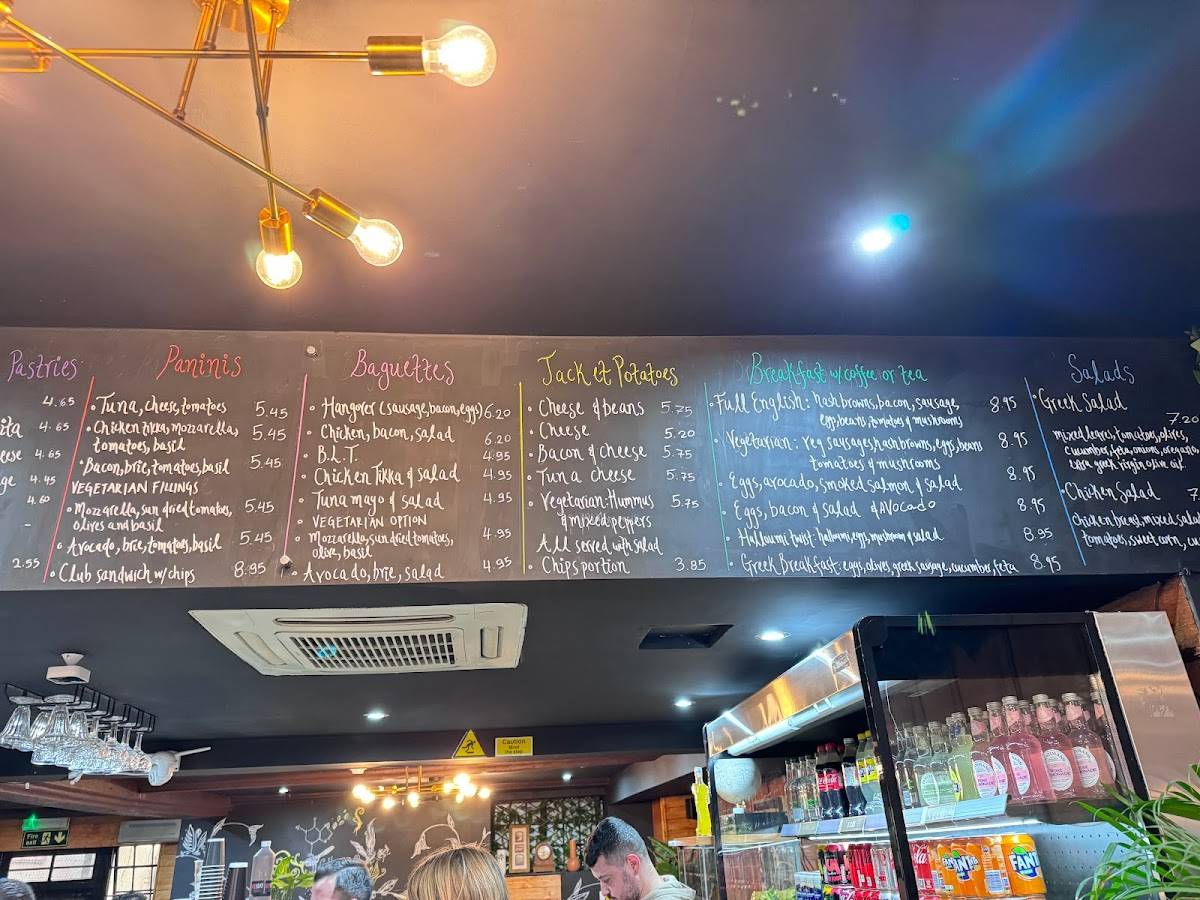 Pastries
4.65
ita 4.65
ese 4.65
ge 4.45
4.60
2.55
Paninis
• Tuna, cheese, tomatoes 5.45
• Chicken tikka, mozzarella, 5.45
tomatoes, basil
• Bacon, brie, tomatoes, basil 5.45
VEGETARIAN FILLINGS
• Mozzarella, sun dried tomatoes, 5.45
olives and basil
• Avocado, brie, tomatoes, basil 5.45
• Club sandwich w/chips 8.95
Baguettes
• Hangover (sausage, bacon, eggs) 6.20
• Chicken, bacon, salad 6.20
• B.L.T. 4.95
• Chicken Tikka & salad 4.95
• Tuna mayo & salad 4.95
• VEGETARIAN OPTION
• Mozzarella, sun dried tomatoes, 4.95
olive, basil
• Avocado, brie, salad 4.95
Jacket Potatoes
• Cheese & beans 5.75
• Cheese 5.20
• Bacon & cheese 5.75
• Tuna cheese 5.75
• Vegetarian: Hummus 5.75
& mixed peppers
All served with salad
• Chips portion 3.85
Breakfast w/coffee or tea
• Full English: hash browns, bacon, sausage, 8.95
eggs, beans, tomatoes & mushrooms
• Vegetarian: veg sausages, hash browns, eggs, beans 8.95
tomatoes & mushrooms
• Eggs, avocado, smoked salmon & salad 8.95
• Eggs, bacon & salad & Avocado 8.95
• Halloumi twist: halloumi, eggs, mushroom & salad 8.95
• Greek Breakfast: eggs, olives, greek sausage, cucumber, feta 8.95
Salads
• Greek Salad 7.20
mixed leaves, tomatoes, olives,
cucumber, feta, onions, oregano,
extra greek virgin olive oil
• Chicken Salad 7
Chicken breast, mixed sala
tomatoes, sweet corn, cu
Caution
Mind
the step
Fire
exit
FANTA
FANTA